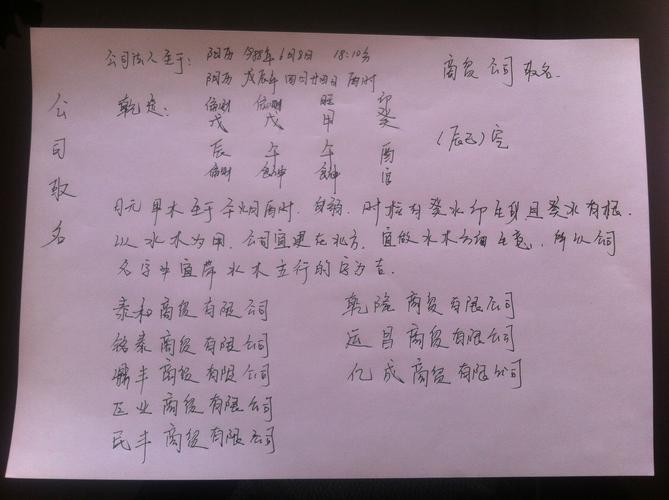 公司取名
公司法人生于: 阳历 年6月8日 18:10分
阴历 戊辰年 四月廿四日 酉时
商贸公司取名.
乾造: 偏财 偏财 印
戊 戊 甲 癸
辰 午 午 酉
偏财 官
(辰巳)空
日元甲木生于午月酉时. 身弱. 时柱有癸水印生身且癸水有根.
以水木为用. 公司宜建在北方. 宜做水木方面生意. 所以公司
名字 宜带水木五行的字为吉.
泰和商贸有限公司
铭泰商贸有限公司
鼎丰商贸有限公司
商贸有限公司
民丰商贸有限公司
乾隆商贸有限公司
运昌商贸有限公司
亿成商贸有限公司